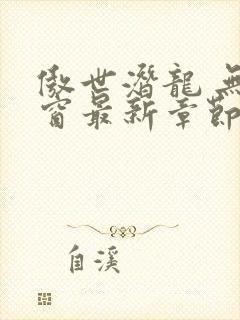 傲世潛龍 無
窗最新章節
自溪